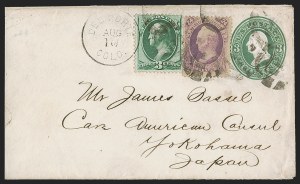 AUG
COLO.
Mr James Bassel
Care American Consul
Yokohama
Japan